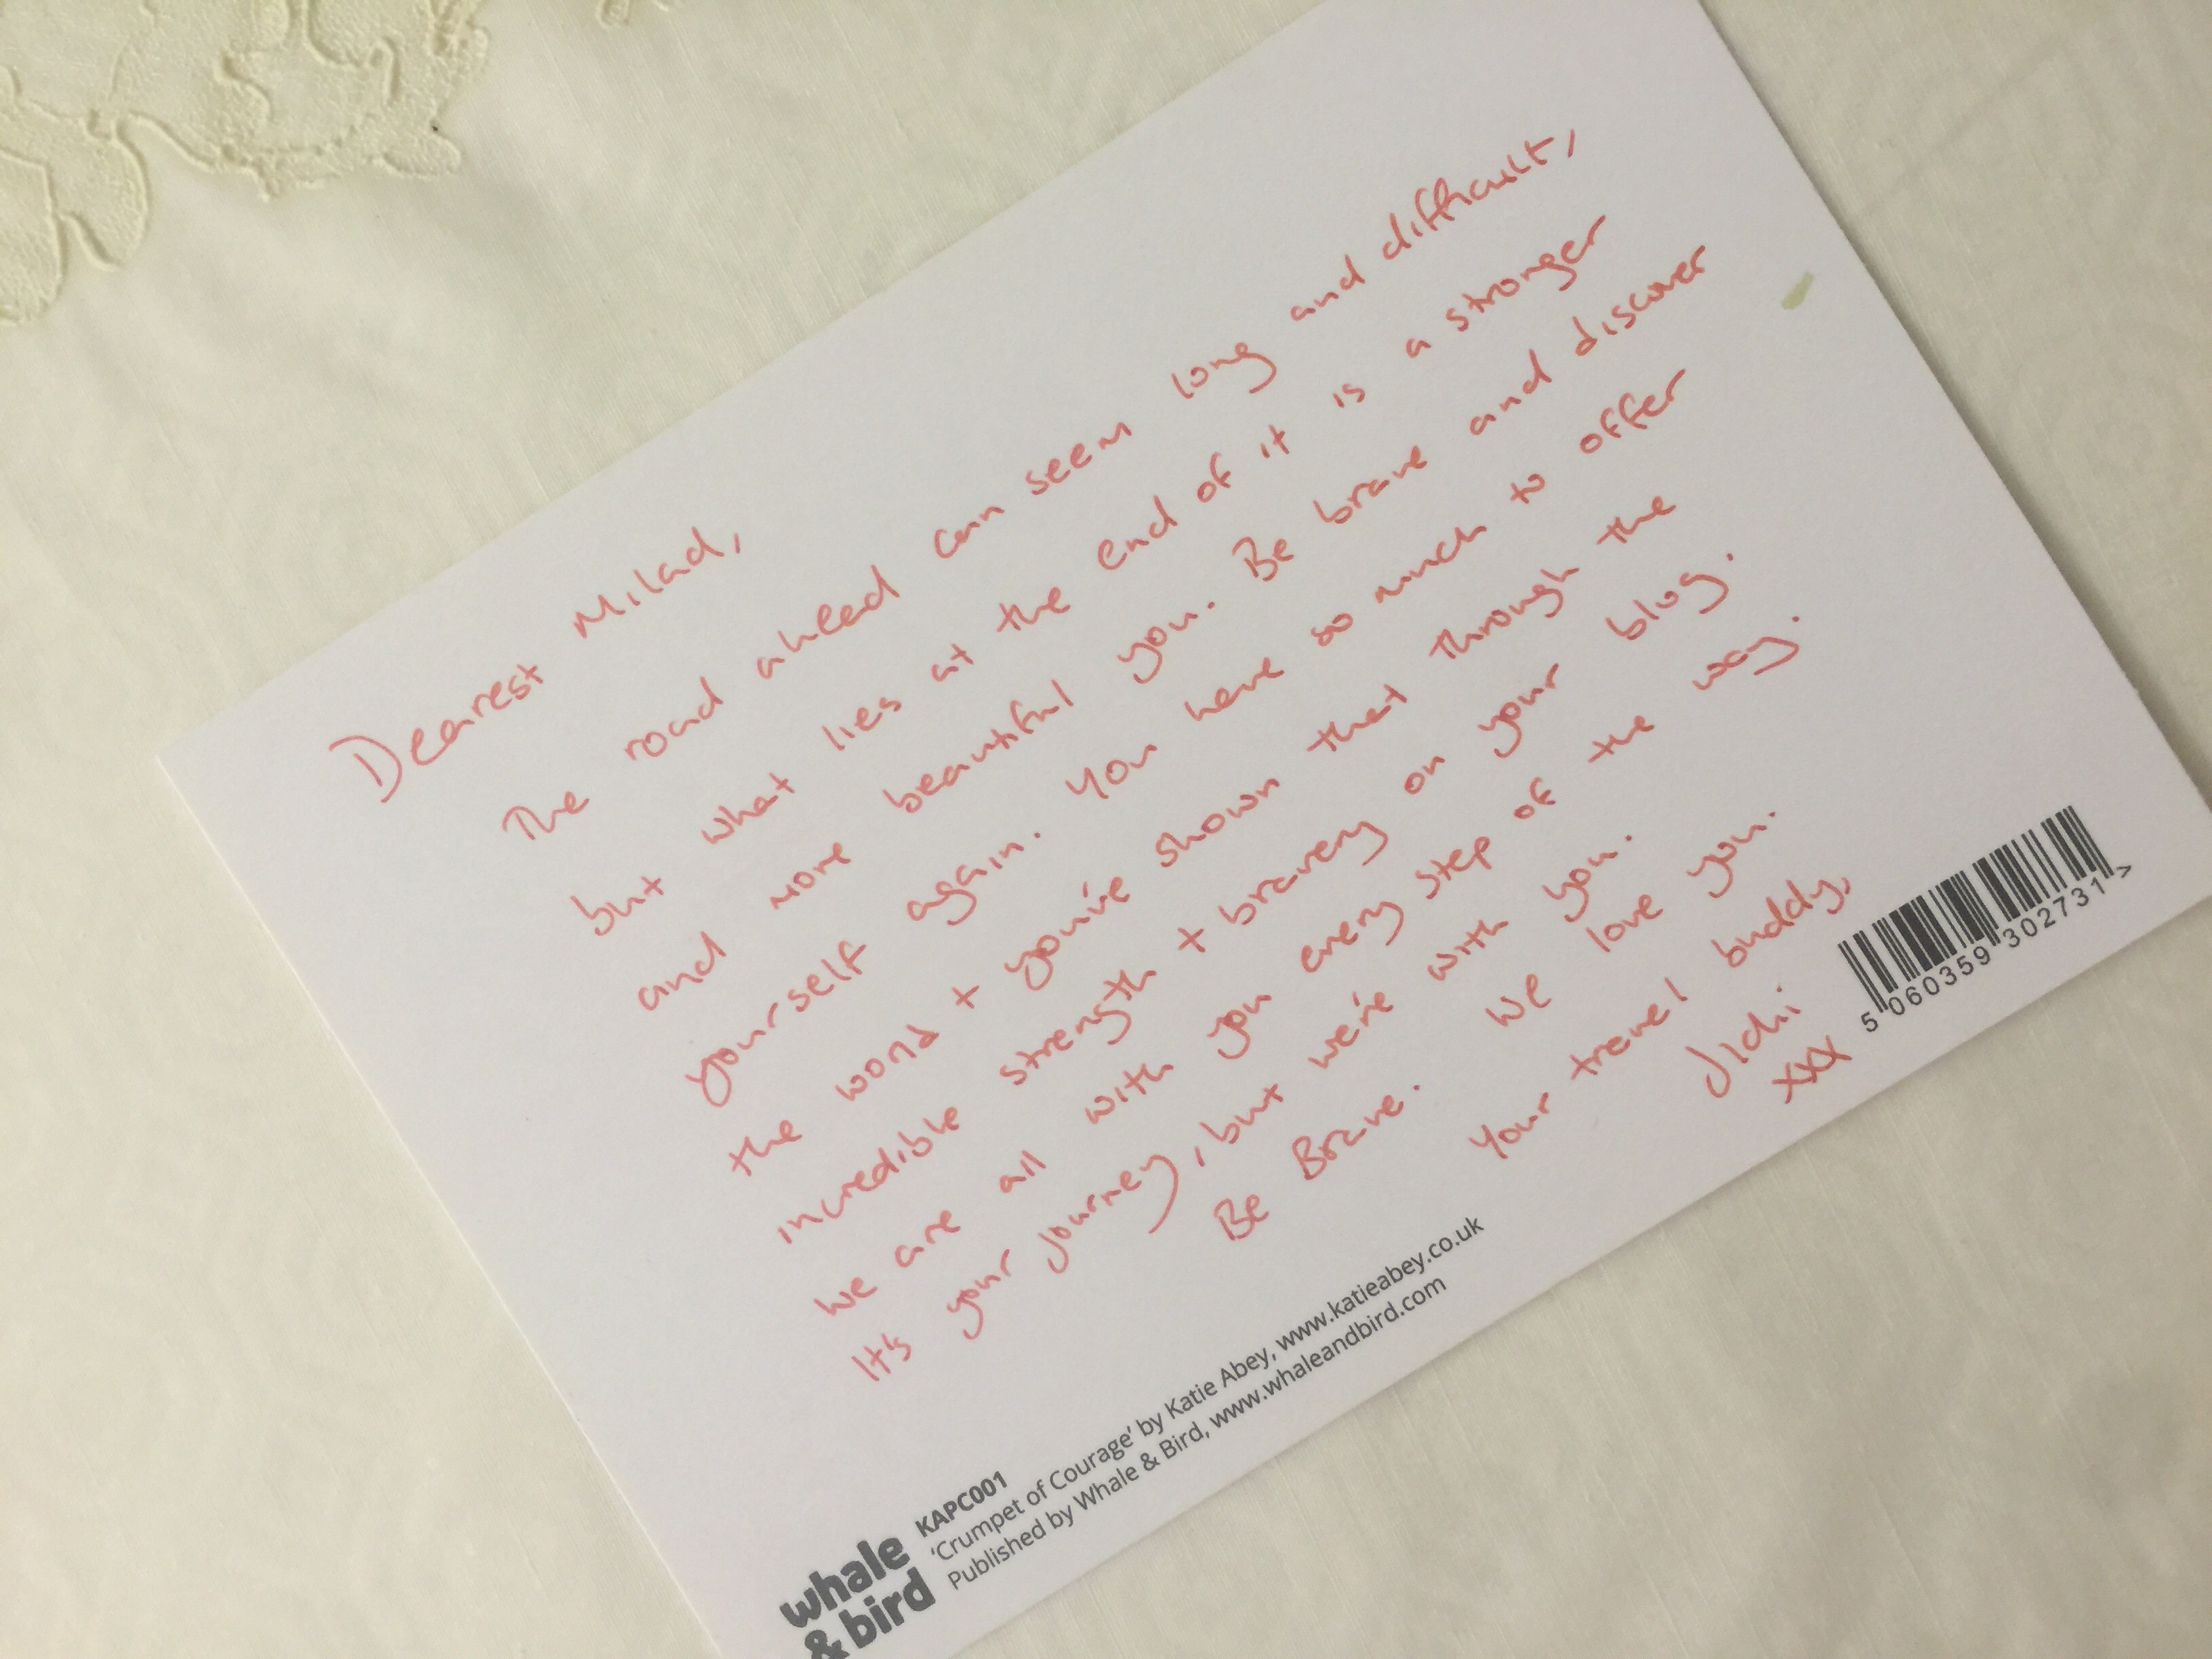 Dearest Milad,
The road ahead can seem long and difficult,
but what lies at the end of it is a stronger
and more beautiful you. Be brave and discover
yourself again. You have so much to offer
the world + you've shown that through the
incredible strength + bravery on your blog.
We are all with you every step of the way.
It's your journey, but we're with you.
Be Brave. We love you.
Your travel buddy,
Jichi
xxx
5 060359 302731 >
whale
& bird
KAPC001
'Crumpet of Courage' by Katie Abey, www.katieabey.co.uk
Published by Whale & Bird, www.whaleandbird.com